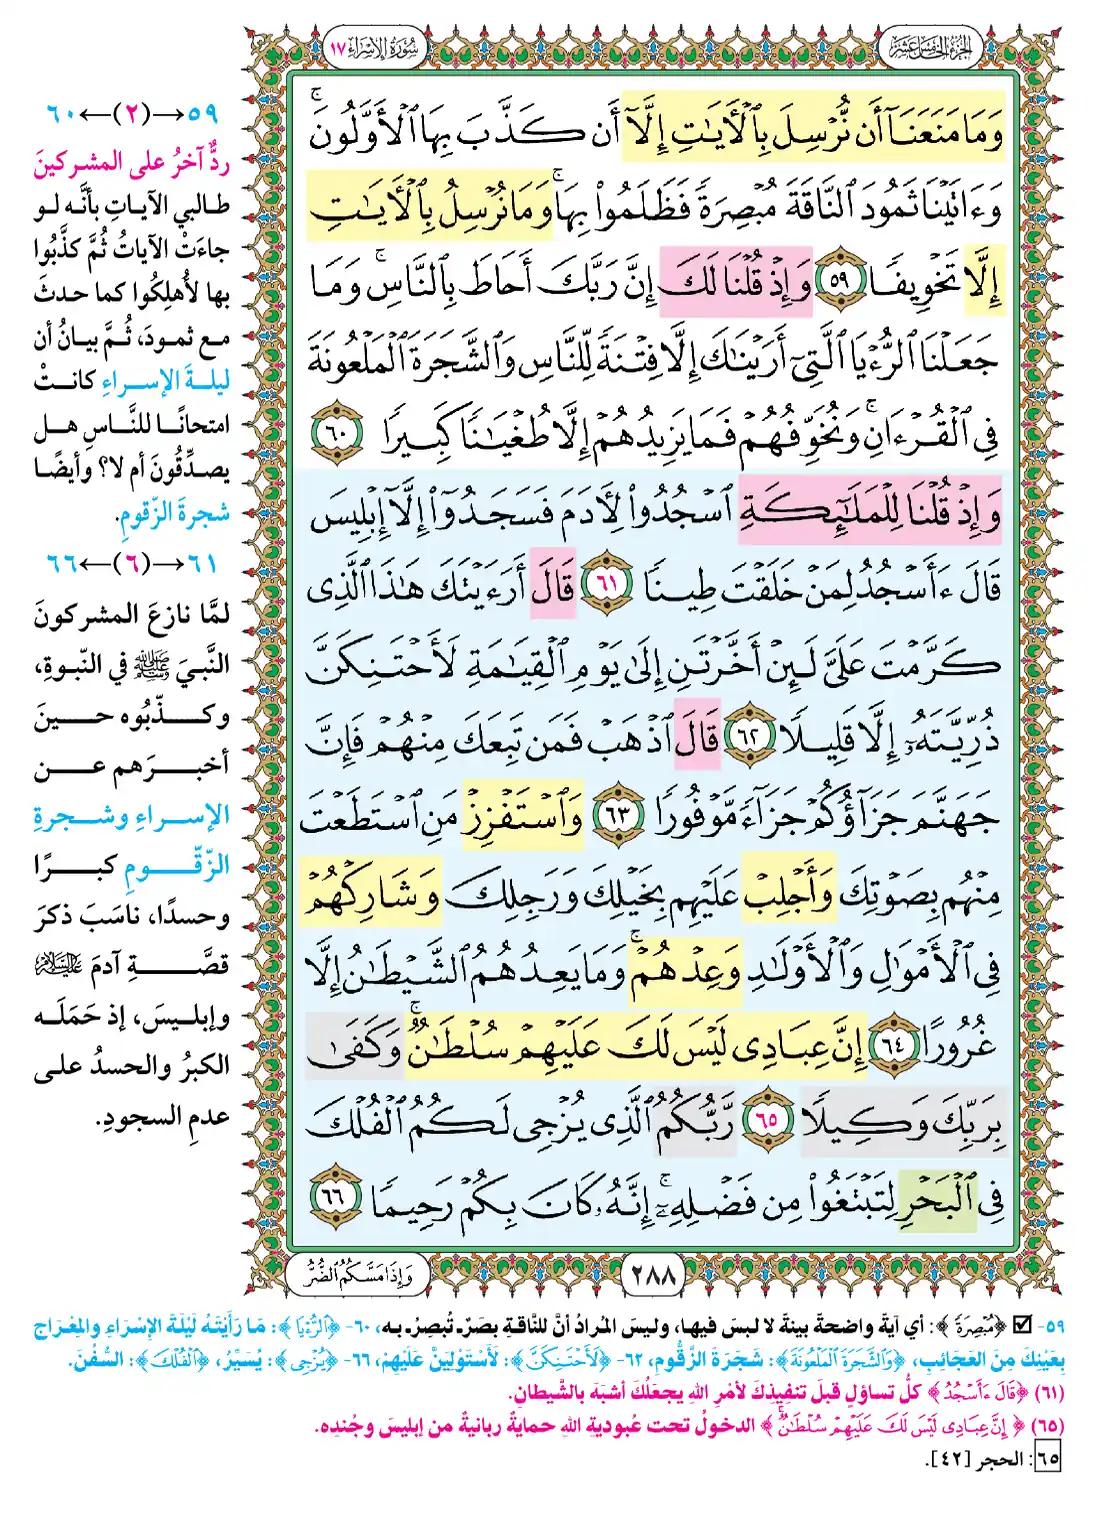 الجزء الخامس عشر
سورة الإسراء ١٧
وَمَا مَنَعَنَآ أَن نُّرْسِلَ بِٱلْأَيَٰتِ إِلَّآ أَن كَذَّبَ بِهَا ٱلْأَوَّلُونَۚ
وَءَاتَيْنَا ثَمُودَ ٱلنَّاقَةَ مُبْصِرَةً فَظَلَمُوا۟ بِهَاۚ وَمَا نُرْسِلُ بِٱلْأَيَٰتِ
إِلَّا تَخْوِيفًا ٥٩ وَإِذْ قُلْنَا لَكَ إِنَّ رَبَّكَ أَحَاطَ بِٱلنَّاسِۚ وَمَا
جَعَلْنَا ٱلرُّءْيَا ٱلَّتِىٓ أَرَيْنَٰكَ إِلَّا فِتْنَةً لِّلنَّاسِ وَٱلشَّجَرَةَ ٱلْمَلْعُونَةَ
فِى ٱلْقُرْءَانِۚ وَنُخَوِّفُهُمْ فَمَا يَزِيدُهُمْ إِلَّا طُغْيَٰنًا كَبِيرًا ٦٠
وَإِذْ قُلْنَا لِلْمَلَٰٓئِكَةِ ٱسْجُدُوا۟ لِأَدَمَ فَسَجَدُوٓا۟ إِلَّآ إِبْلِيسَ
قَالَ ءَأَسْجُدُ لِمَنْ خَلَقْتَ طِينًا ٦١ قَالَ أَرَءَيْتَكَ هَٰذَا ٱلَّذِى
كَرَّمْتَ عَلَىَّ لَئِنْ أَخَّرْتَنِ إِلَىٰ يَوْمِ ٱلْقِيَٰمَةِ لَأَحْتَنِكَنَّ
ذُرِّيَّتَهُۥٓ إِلَّا قَلِيلًا ٦٢ قَالَ ٱذْهَبْ فَمَن تَبِعَكَ مِنْهُمْ فَإِنَّ
جَهَنَّمَ جَزَآؤُكُمْ جَزَآءً مَّوْفُورًا ٦٣ وَٱسْتَفْزِزْ مَنِ ٱسْتَطَعْتَ
مِنْهُم بِصَوْتِكَ وَأَجْلِبْ عَلَيْهِم بِخَيْلِكَ وَرَجِلِكَ وَشَارِكْهُمْ
فِى ٱلْأَمْوَٰلِ وَٱلْأَوْلَٰدِ وَعِدْهُمْۚ وَمَا يَعِدُهُمُ ٱلشَّيْطَٰنُ إِلَّا
غُرُورًا ٦٤ إِنَّ عِبَادِى لَيْسَ لَكَ عَلَيْهِمْ سُلْطَٰنٌۚ وَكَفَىٰ
بِرَبِّكَ وَكِيلًا ٦٥ رَّبُّكُمُ ٱلَّذِى يُزْجِى لَكُمُ ٱلْفُلْكَ
فِى ٱلْبَحْرِ لِتَبْتَغُوا۟ مِن فَضْلِهِۦٓۚ إِنَّهُۥ كَانَ بِكُمْ رَحِيمًا ٦٦
٢٨٨
وَإِذَا مَسَّكُمُ ٱلضُّرُّ
٥٩→(٢)←٦٠
ردٌّ آخرُ على المشركينَ
طالبي الآياتِ بأنَّه لو
جاءَتْ الآياتُ ثُمَّ كذَّبُوا
بها لأُهلِكُوا كما حدثَ
مع ثمودَ، ثُمَّ بيانُ أن
ليلةَ الإسراءِ كانتْ
امتحانًا للنَّاسِ هل
يصدِّقُونَ أم لا؟ وأيضًا
شجرةَ الزّقومِ.
٦١→(٦)←٦٦
لمَّا نازعَ المشركونَ
النَّبيَ ﷺ في النّبوةِ،
وكذّبُوه حينَ
أخبرَهم عن
الإسراءِ وشجرةِ
الزّقّومِ كبرًا
وحسدًا، ناسَبَ ذكرَ
قصَّةِ آدمَ عليه السلام
وإبليسَ، إذ حَمَلَه
الكبرُ والحسدُ على
عدمِ السجودِ.
٥٩- ☑ ﴿مُبْصِرَةً﴾: أي آيةً واضحةً بينةً لا لبسَ فيها، وليسَ المرادُ أنَّ للنَّاقةِ بصرًا تُبصِرُ به، ٦٠- ﴿ٱلرُّءْيَا﴾: مَا رَأَيْتَهُ لَيْلَةَ الإِسْرَاءِ وَالمِعْرَاجِ
بِعَيْنِكَ مِنَ العَجَائِبِ، ﴿وَٱلشَّجَرَةَ ٱلْمَلْعُونَةَ﴾: شَجَرَةَ الزَّقُّومِ، ٦٢- ﴿لَأَحْتَنِكَنَّ﴾: لَأَسْتَوْلِيَنَّ عَلَيْهِمْ، ٦٦- ﴿يُزْجِى﴾: يُسَيِّرُ، ﴿ٱلْفُلْكَ﴾: السُّفُنَ.
(٦١) ﴿قَالَ ءَأَسْجُدُ﴾ كلُّ تساؤلٍ قبلَ تنفيذِكَ لأمْرِ اللهِ يجعلُكَ أشبَهَ بالشَّيطانِ.
(٦٥) ﴿إِنَّ عِبَادِى لَيْسَ لَكَ عَلَيْهِمْ سُلْطَٰنٌ﴾ الدخولُ تحت عُبوديةِ اللهِ حمايةٌ ربانيةٌ من إبليسَ وجُندِه.
٦٥: الحجر [٤٢].